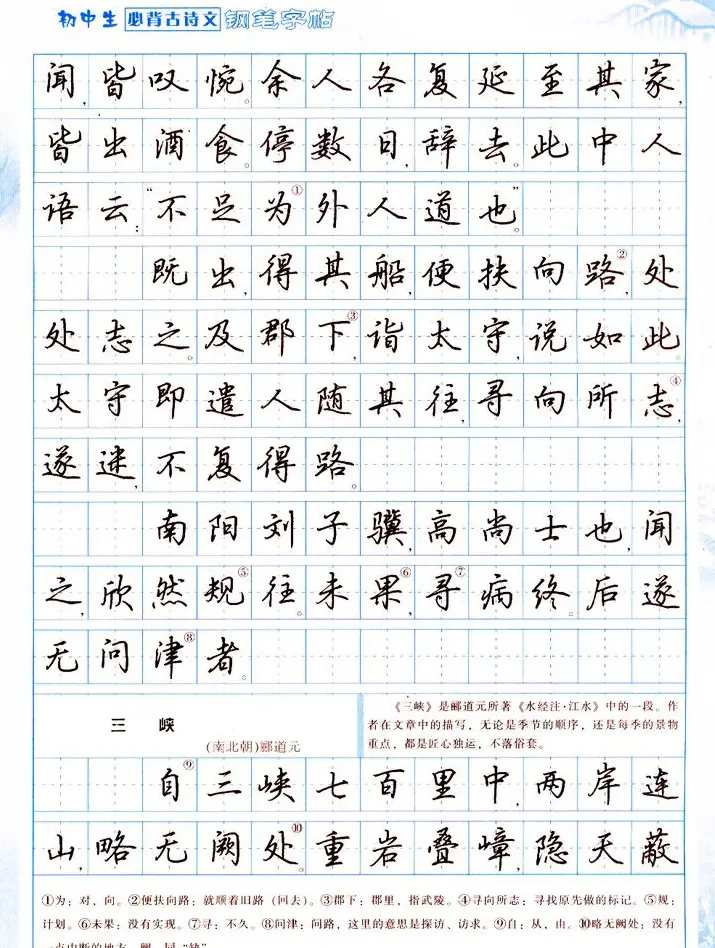 初中生 必背古诗文 钢笔字帖
闻，皆叹惋。余人各复延至其家，
皆出酒食。停数日，辞去。此中人
语云：“不足为①外人道也。”
既出，得其船，便扶向路②，处
处志之。及郡下③，诣太守，说如此。
太守即遣人随其往，寻向所志④，
遂迷，不复得路。
南阳刘子骥，高尚士也，闻
之，欣然规⑤往。未果⑥，寻⑦病终。后遂
无问津⑧者。
三 峡
(南北朝)郦道元
《三峡》是郦道元所著《水经注·江水》中的一段。作
者在文章中的描写，无论是季节的顺序，还是每季的景物
重点，都是匠心独运，不落俗套。
自⑨三峡七百里中，两岸连
山，略无阙处⑩。重岩叠嶂，隐天蔽
①为：对，向。②便扶向路：就顺着旧路（回去）。③郡下：郡里，指武陵。④寻向所志：寻找原先做的标记。⑤规：
计划。⑥未果：没有实现。⑦寻：不久。⑧问津：问路，这里的意思是探访、访求。⑨自：从，由。⑩略无阙处：没有